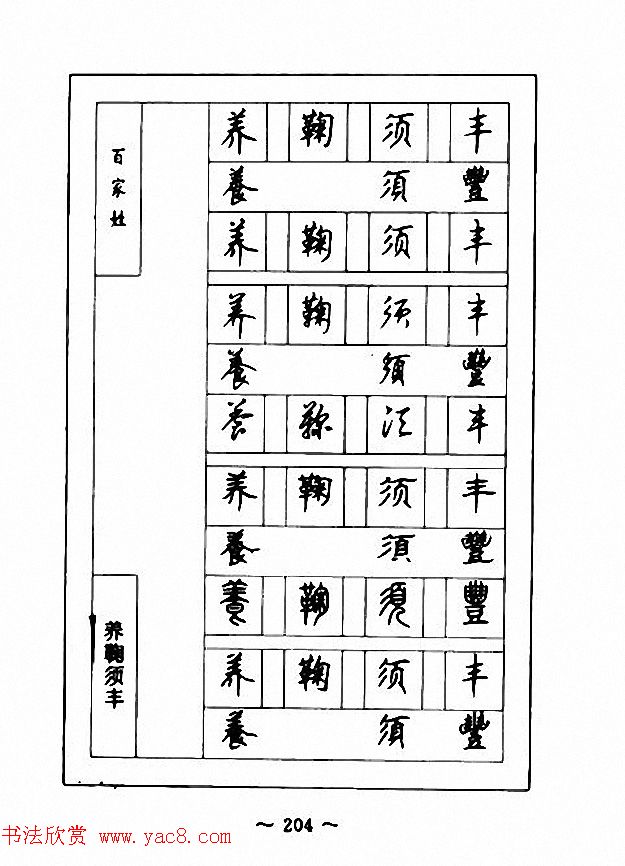 百家姓
养 鞠 须 丰
養 須 豐
养 鞠 须 丰
养 鞠 须 丰
養 須 豐
养 鞠 须 丰
养 鞠 须 丰
養 須 豐
養 鞠 須 豐
养 鞠 须 丰
養 須 豐
养鞠须丰
~ 204 ~
书法欣赏 www.yac8.com